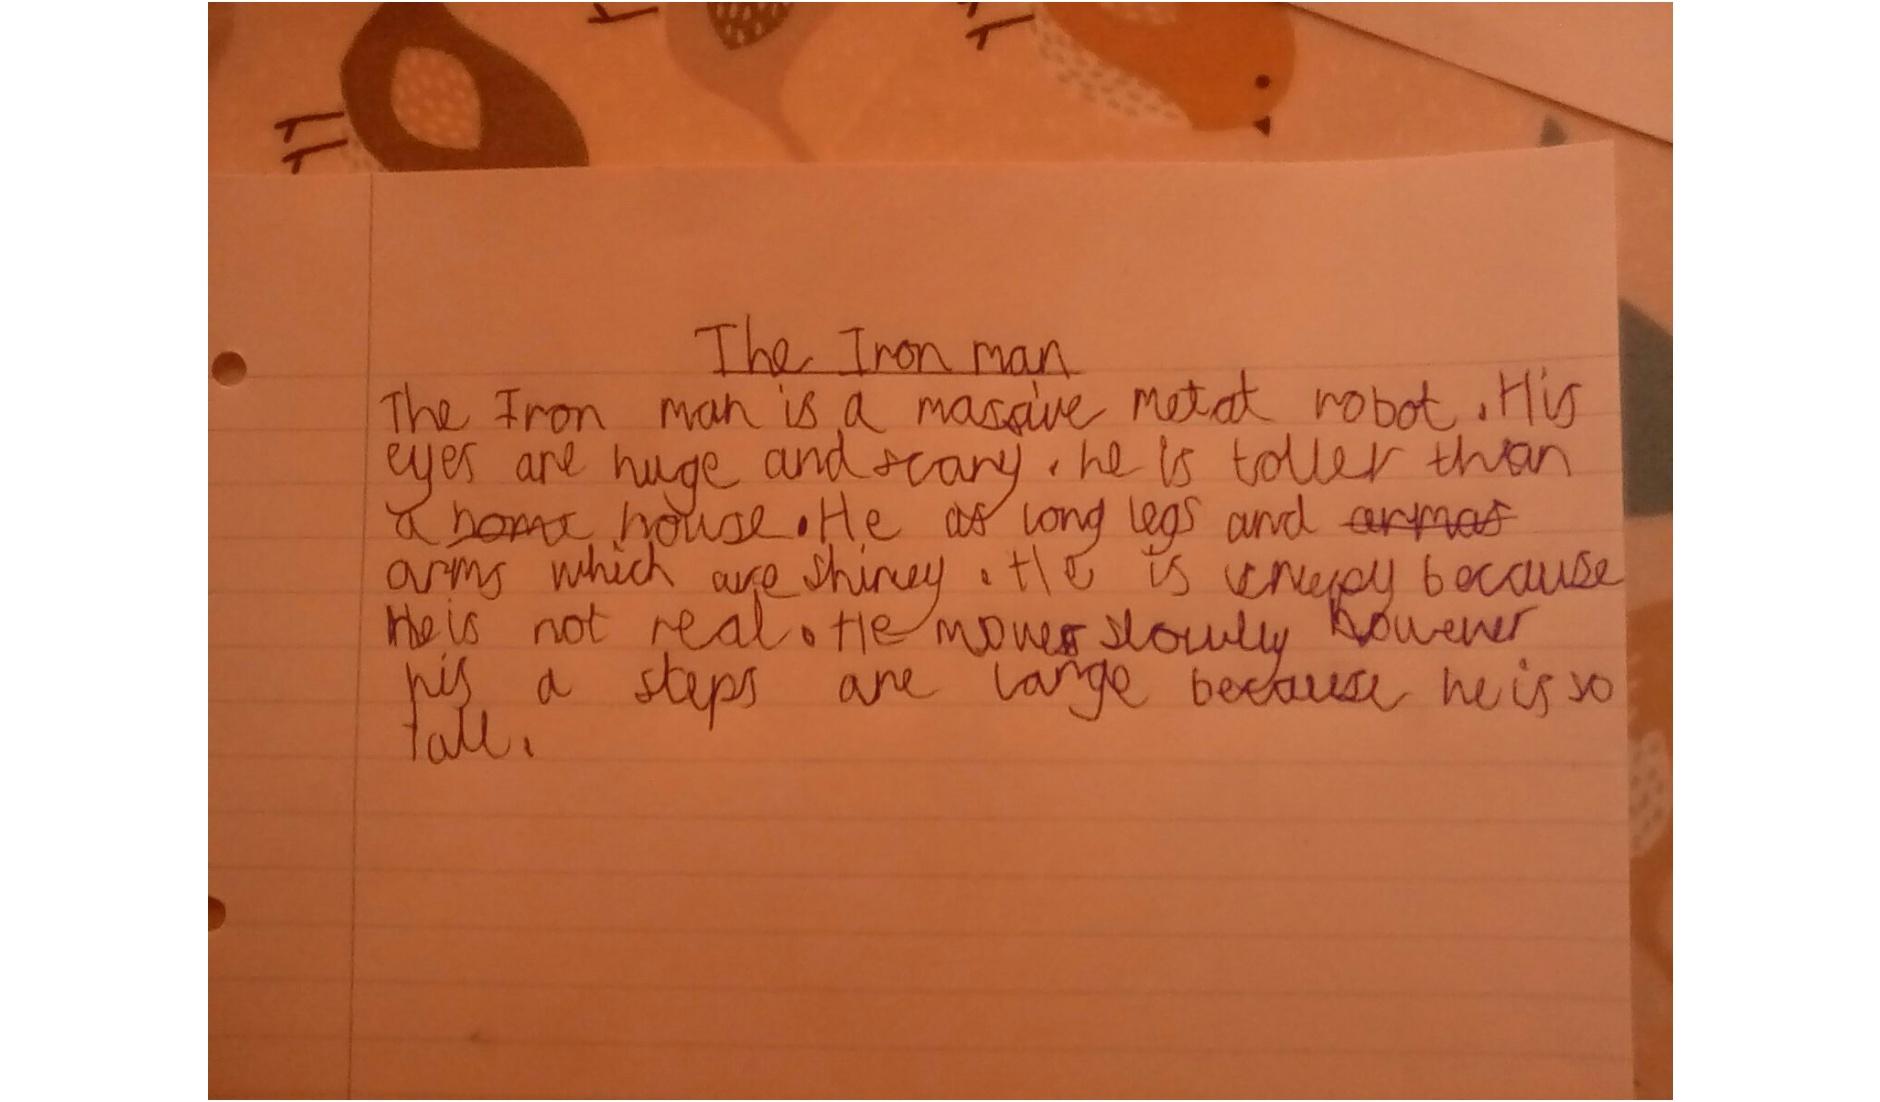 The Iron man
The Iron man is a massive metat robot. His
eyes are huge and scary. he is toller than
a house. He as long legs and
arms which are shiney. He is creepy because
He is not real. He moves slowly however
his a steps are large because he is so
tall.